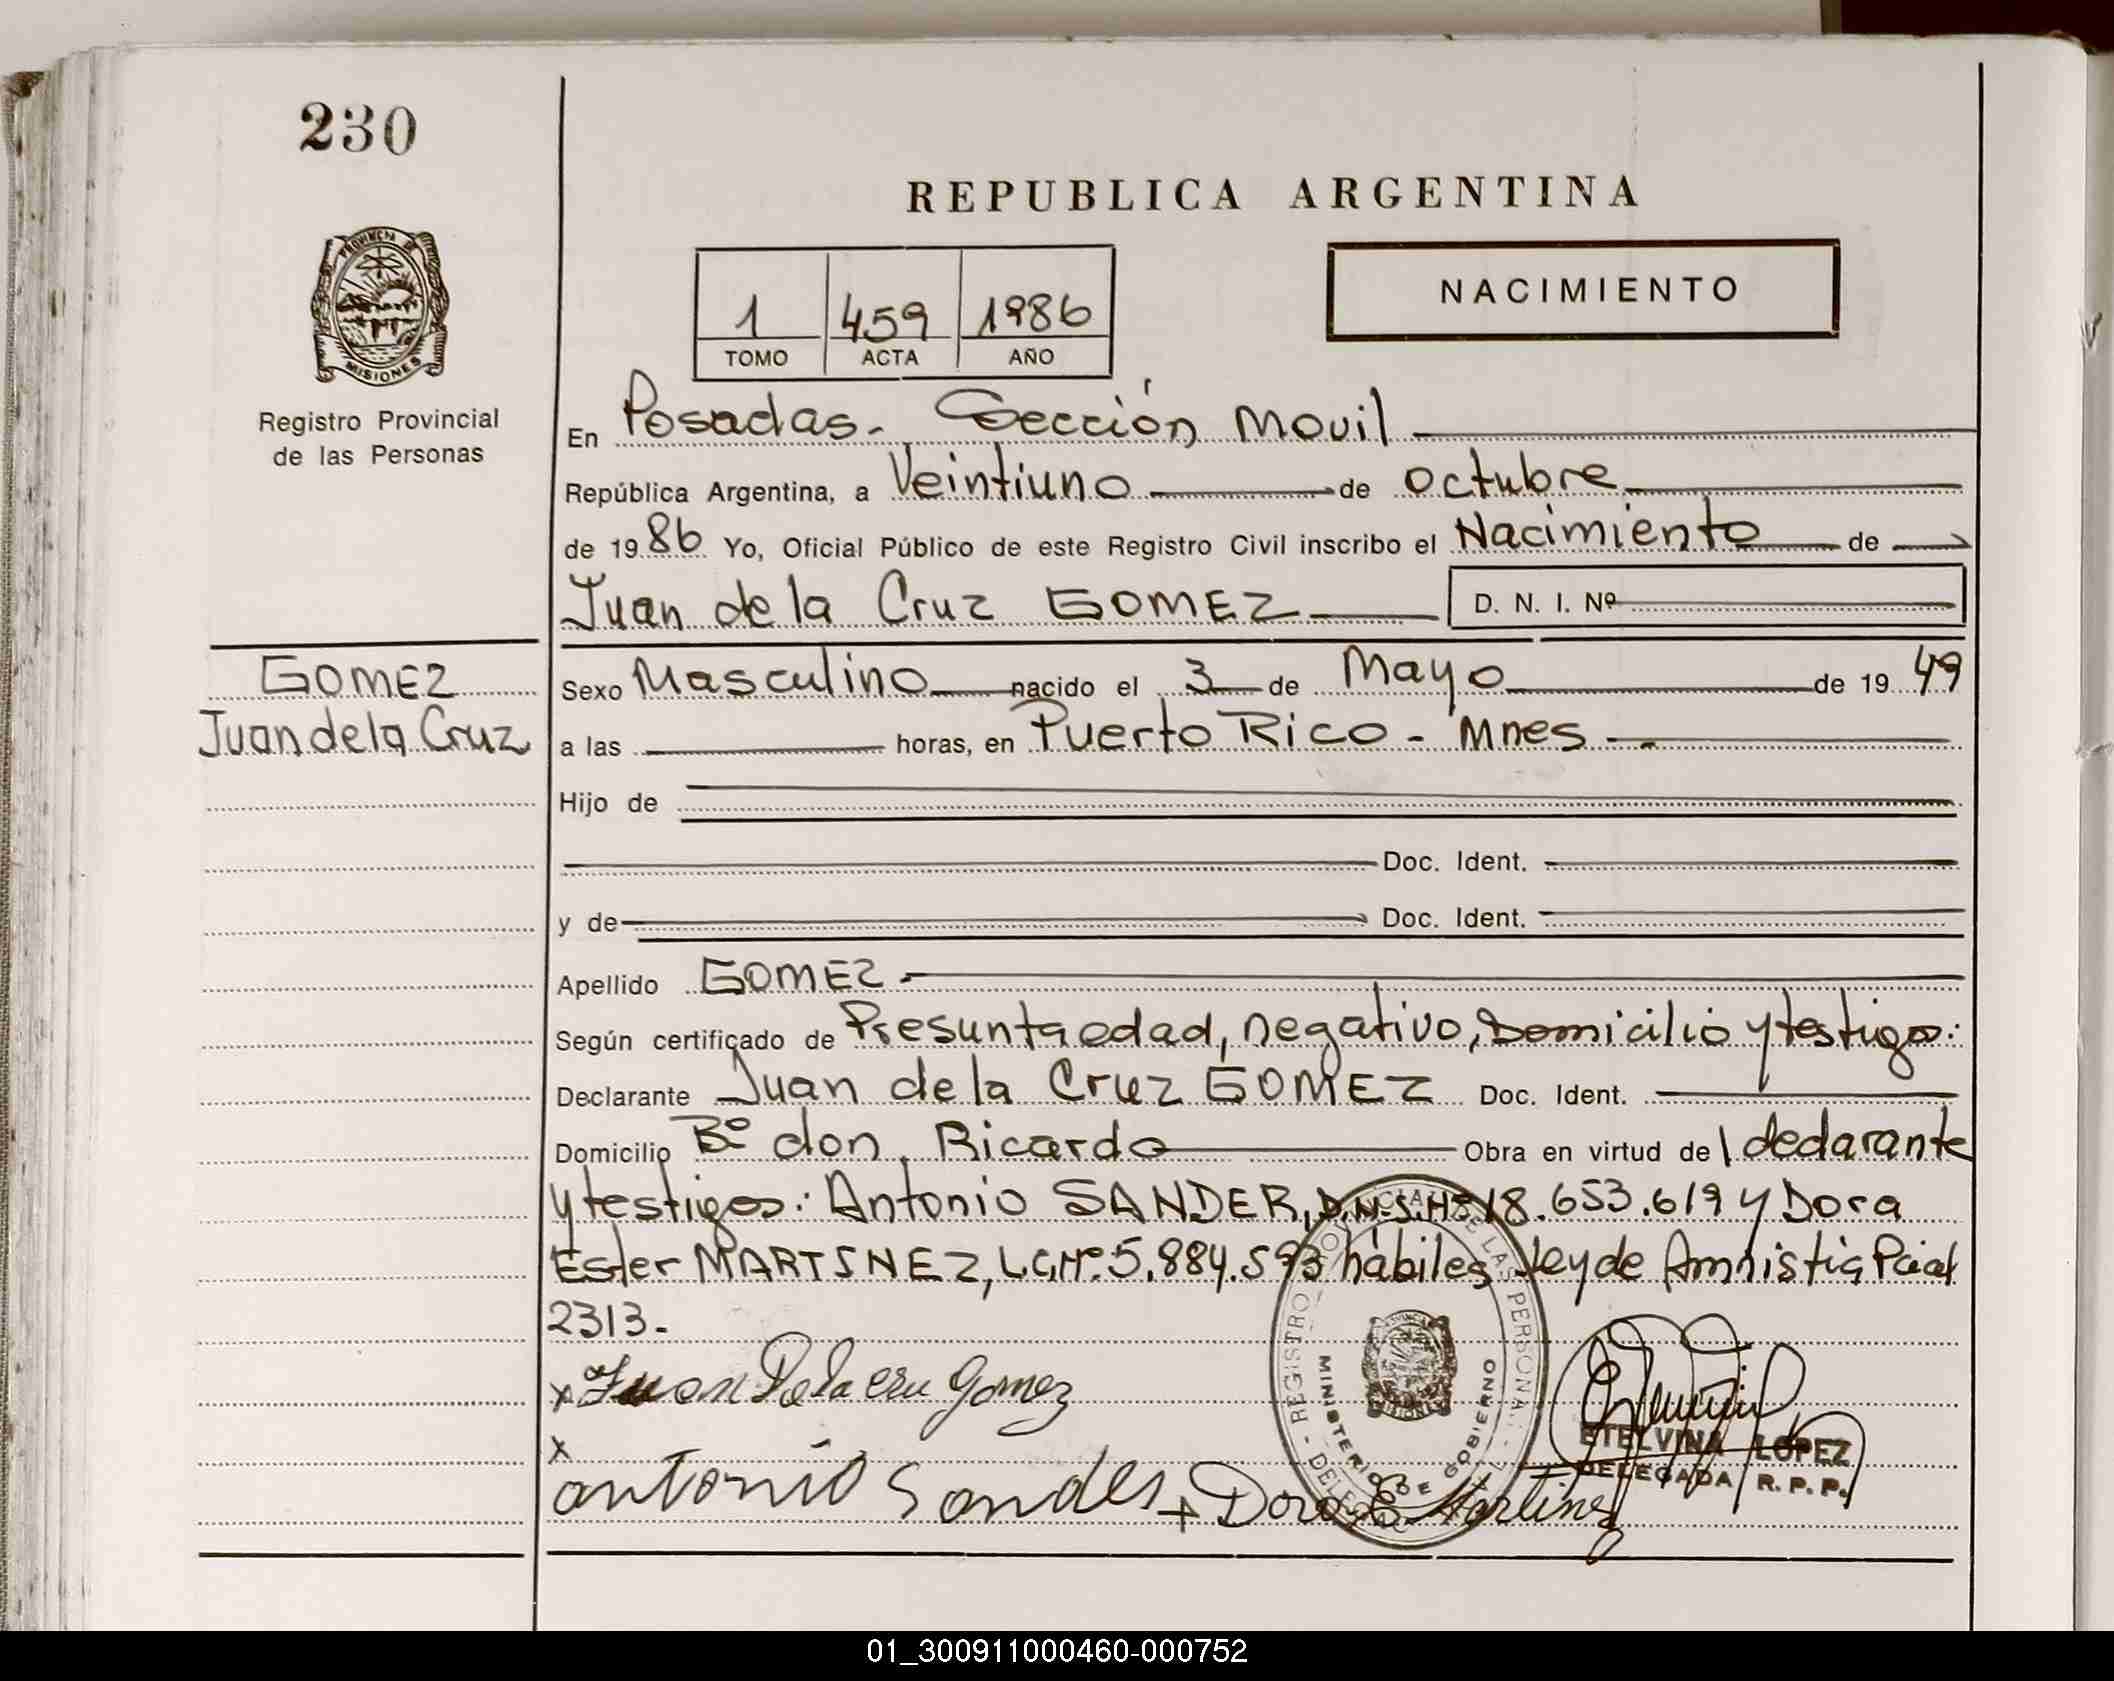 230
REPUBLICA ARGENTINA
PROVINCIA DE
MISIONES
Registro Provincial
de las Personas
1 459 1986
TOMO ACTA AÑO
NACIMIENTO
En Posadas. Sección Movil
República Argentina, a Veintiuno de octubre
de 1986 Yo, Oficial Público de este Registro Civil inscribo el Nacimiento de
Juan de la Cruz GOMEZ D. N. I. Nº
GOMEZ
Juan de la Cruz
Sexo Masculino nacido el 3 de Mayo de 1949
a las horas, en Puerto Rico - Mnes -.
Hijo de
Doc. Ident.
y de Doc. Ident.
Apellido GOMEZ
Según certificado de Presunta edad, negativo, Domicilio y testigos:
Declarante Juan de la Cruz GOMEZ Doc. Ident.
Domicilio Bº don Ricardo Obra en virtud del declarante
y testigos: Antonio SANDER, D.N.I.Nº 18.653.619 y Dora
Ester MARTINEZ, L.C.Nº. 5.884.593 hábiles ley de Amnistia Pcial
2313.-
x Juan De la cru Gomez
x
antonio Sander + Dora E Martinez
REGISTRO PROVINCIAL DE LAS PERSONAS
MINISTERIO DE GOBIERNO
ETELVINA LOPEZ
DELEGADA R. P. P.
01_300911000460-000752